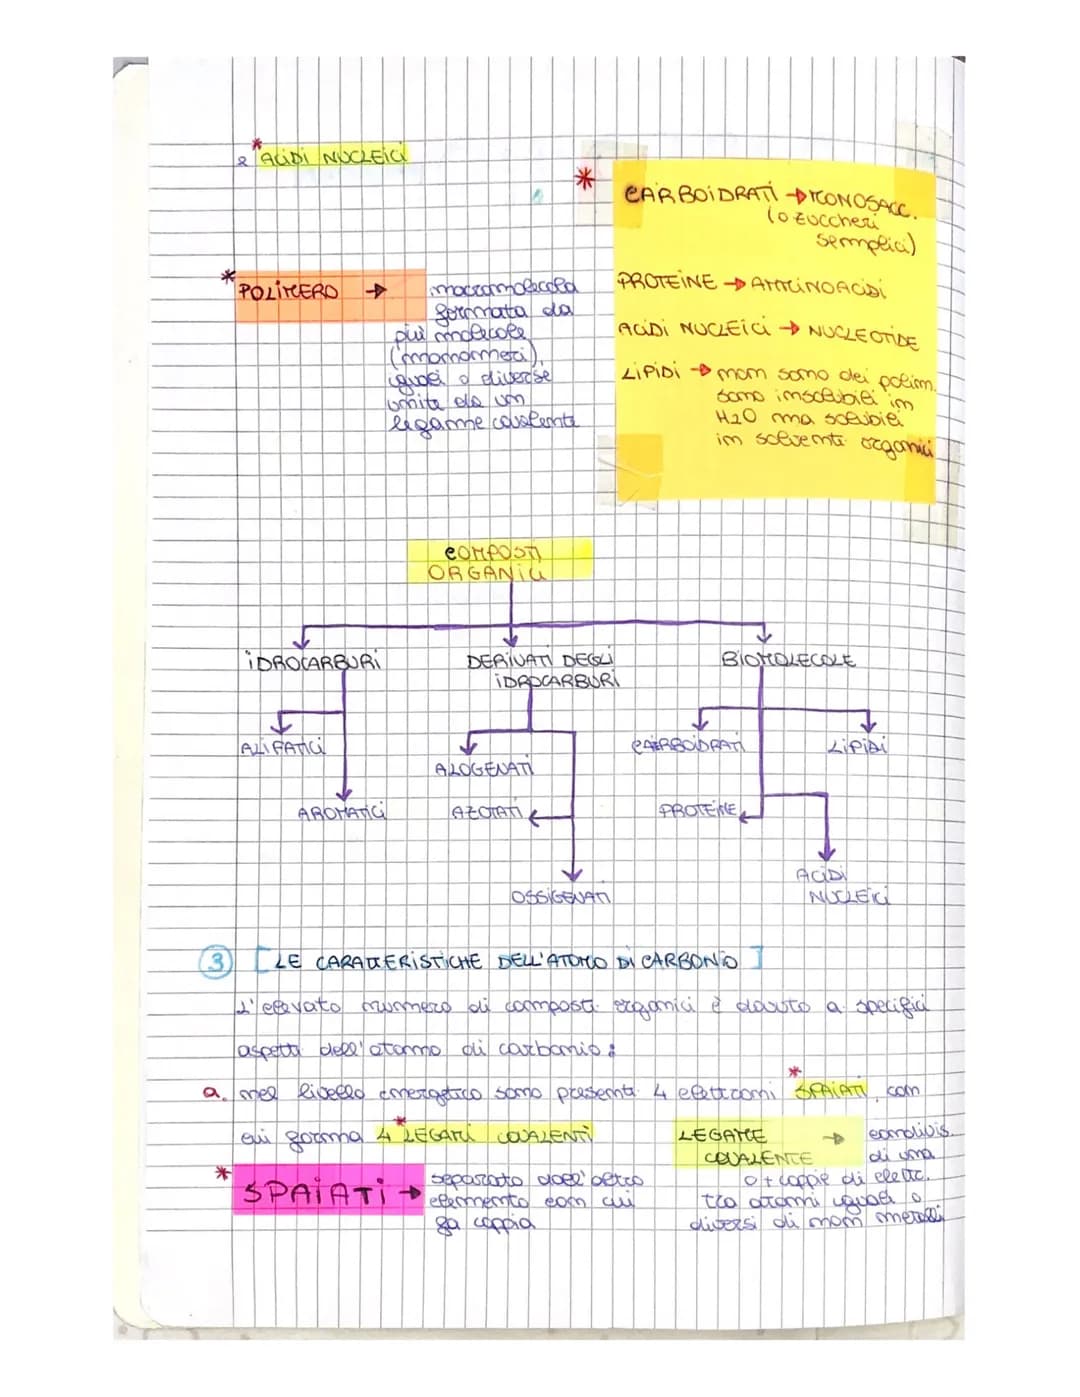 e *ACIDI NUCLEICI
*
CARBOIDRATI → MONOSACC.
(o zuccheri
semplici)
PROTEINE → AMMINOACIDI
ACIDI NUCLEICI → NUCLEOTIDE
LIPIDI → non sono dei polim.
sono insolubili in
H2O ma solubili
in solventi organici
*POLIMERO → macromolecola
formata da
più molecole
(monomeri),
uguali o diverse
unite da un
legame covalente
COMPOSTI
ORGANICI
IDROCARBURI
DERIVATI DEGLI
IDROCARBURI
BIOMOLECOLE
ALIFATICI
AROMATICI
ALOGENATI
AZOTATI
OSSIGENATI
CARBOIDRATI
LIPIDI
PROTEINE
ACIDI
NUCLEICI
3 [LE CARATTERISTICHE DELL'ATOMO DI CARBONIO]
L'elevato numero di composti organici è dovuto a specifici
aspetti dell'atomo di carbonio:
a. nel livello energetico sono presenti 4 elettroni *SPAIATI, con
cui forma 4 *LEGAMI COVALENTI
*SPAIATI → separato dall'altro
elemento con cui
fa coppia
LEGAME COVALENTE → condivis.
di una
o + coppie di elettr.
tra atomi uguali o
diversi di non metalli